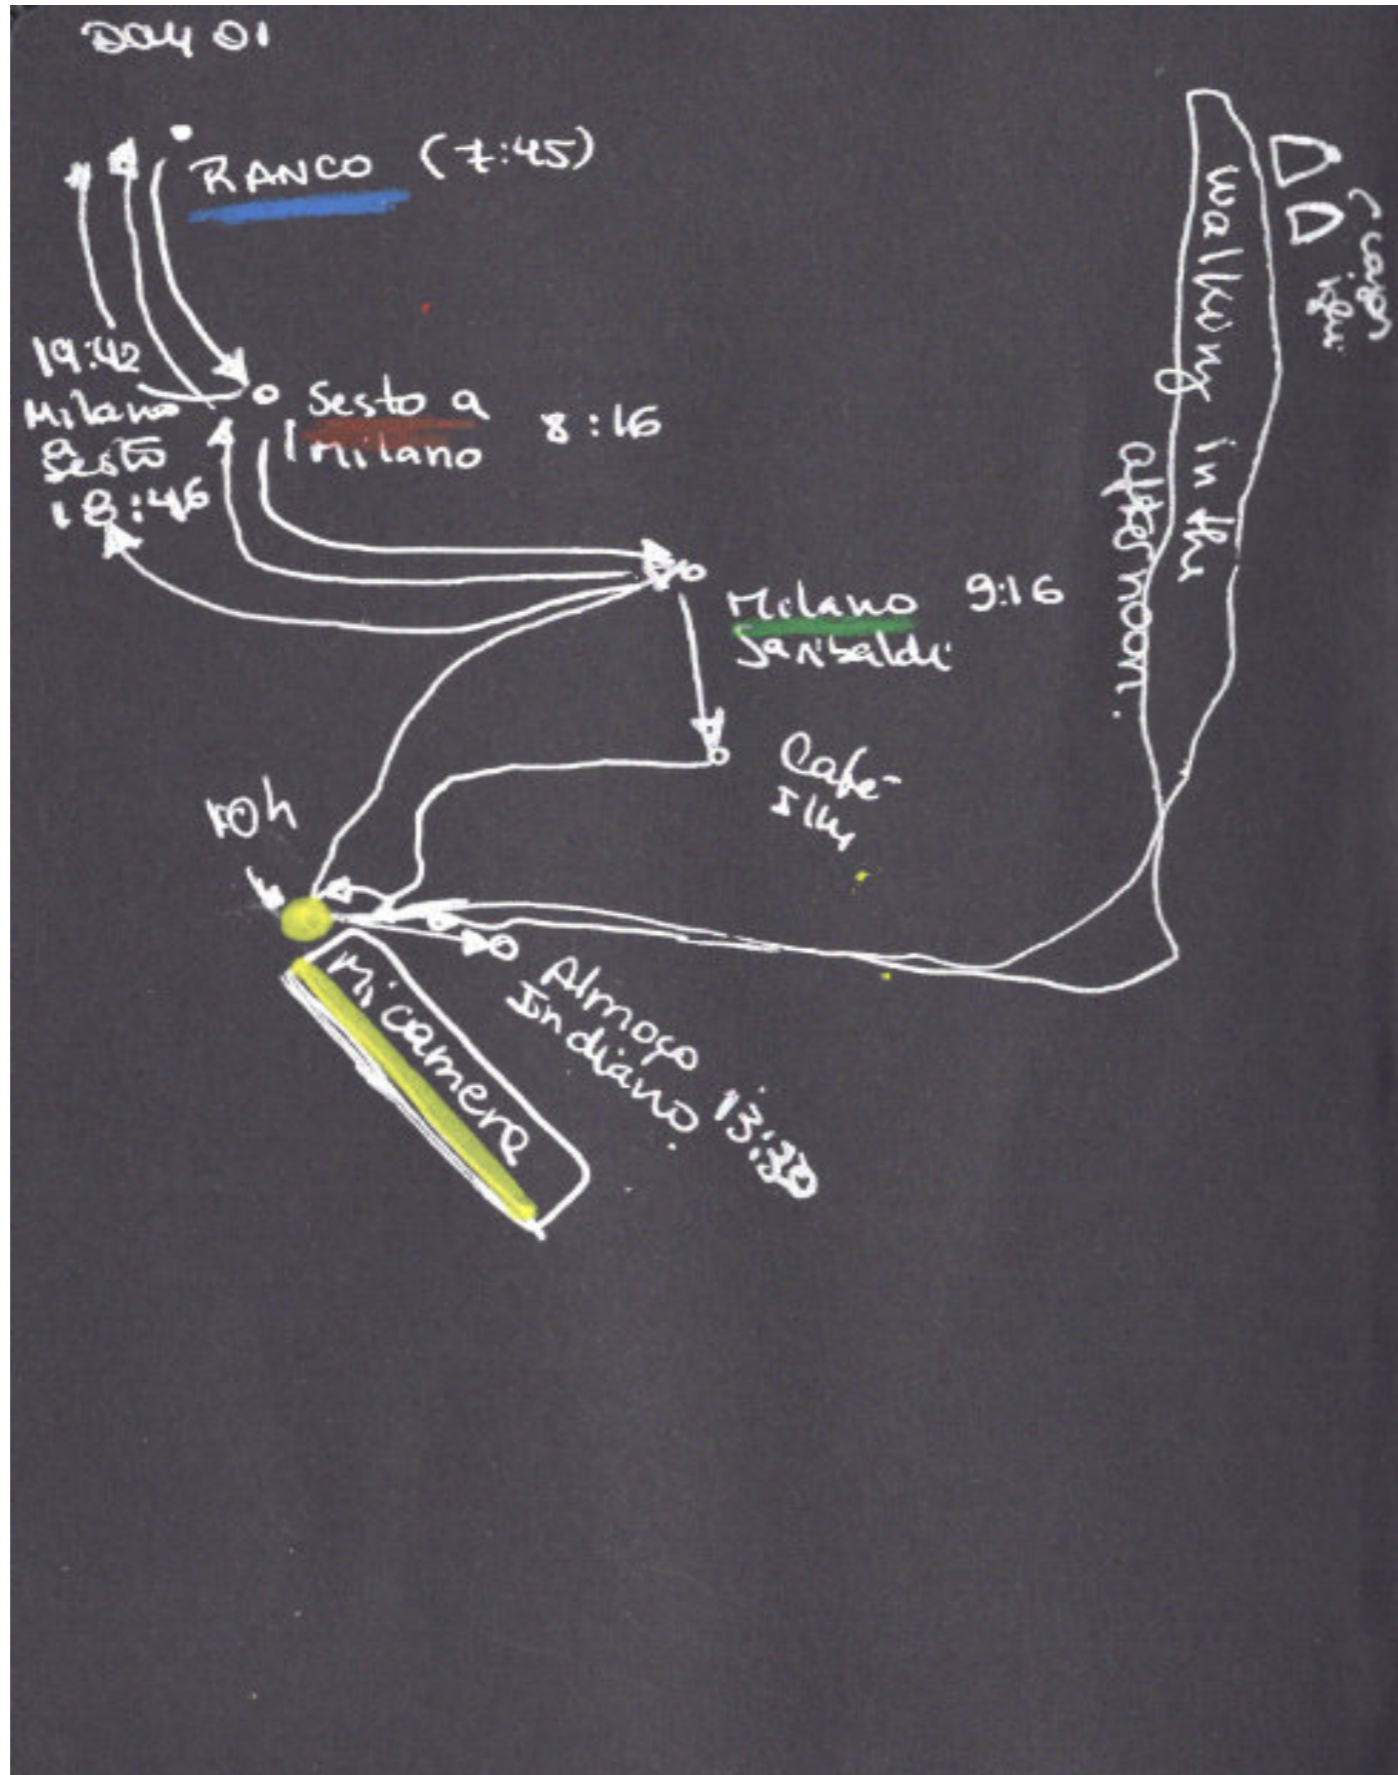 Day 01
RANCO (7:45)
19:42
Milano
a
Sesto
18:46
Sesto a
Milano
8:16
Milano 9:16
Garibaldi
Café
Illy
10h
Micamera
Almoço
Indiano 13:30
walking in the
afternoon.